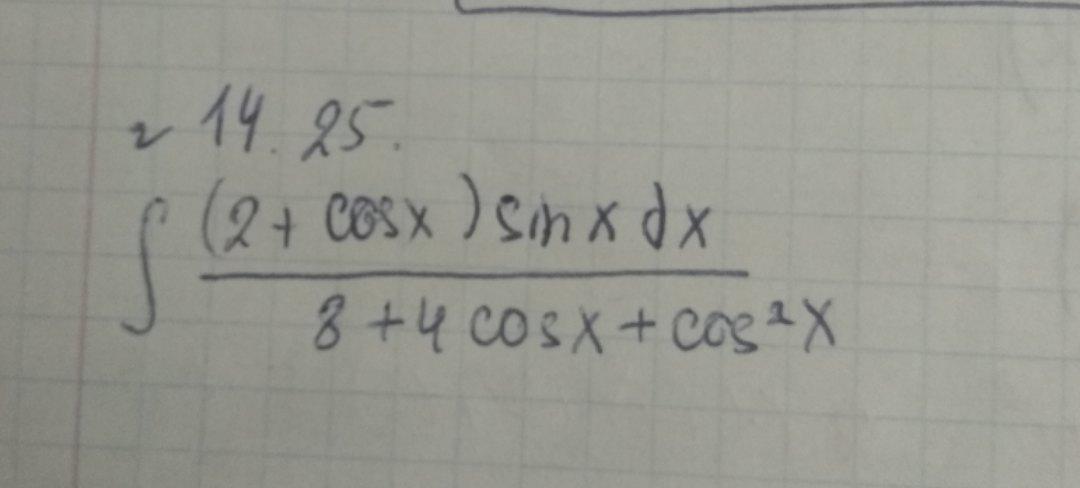 ~ 14. 25.
∫ (2 + cosx) sin x dx
8 + 4 cosx + cos²x